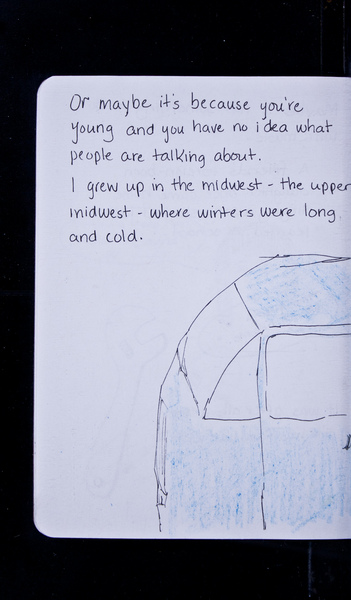 Or maybe it's because you're
young and you have no idea what
people are talking about.
I grew up in the midwest - the upper
midwest - where winters were long
and cold.